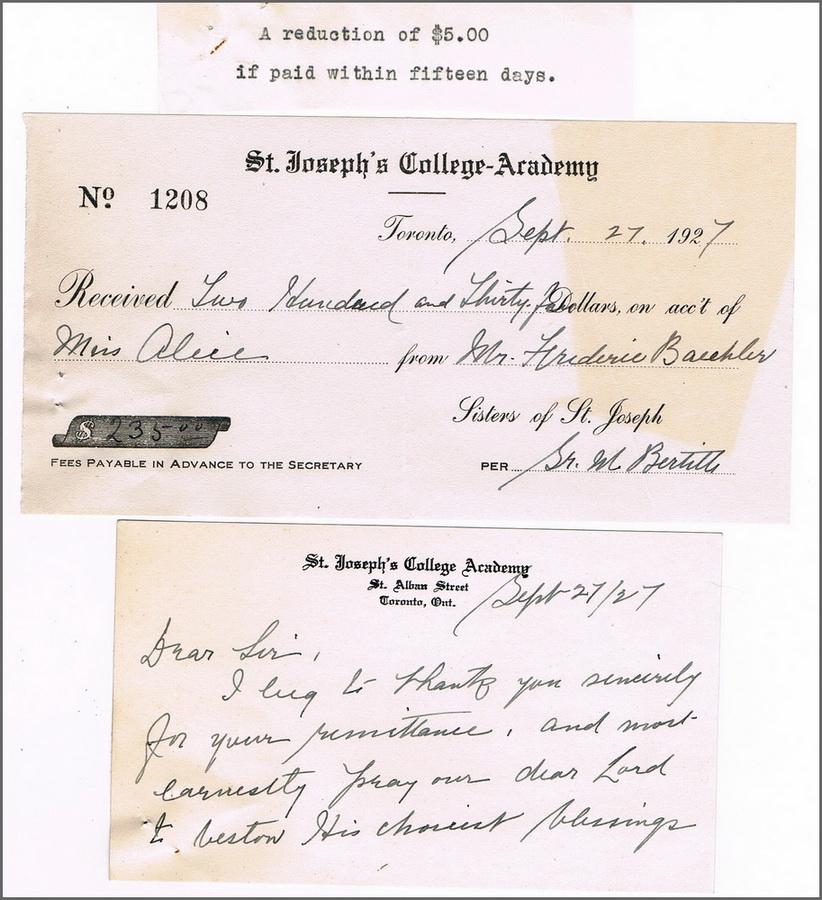 A reduction of $5.00
if paid within fifteen days.
St. Joseph's College-Academy
Nº 1208
Toronto, Sept. 27. 1927
Received Two Hundred and Thirty-five Dollars, on acc't of
Miss Alice from Mr. Frederic Baechler
Sisters of St. Joseph
$ 235.00
FEES PAYABLE IN ADVANCE TO THE SECRETARY
PER Sr. M. Bertille
St. Joseph's College Academy
St. Alban Street
Toronto, Ont.
Sept 27/27
Dear Sir,
I beg to thank you sincerely
for your remittance, and most
earnestly pray our dear Lord
to bestow His choicest blessings